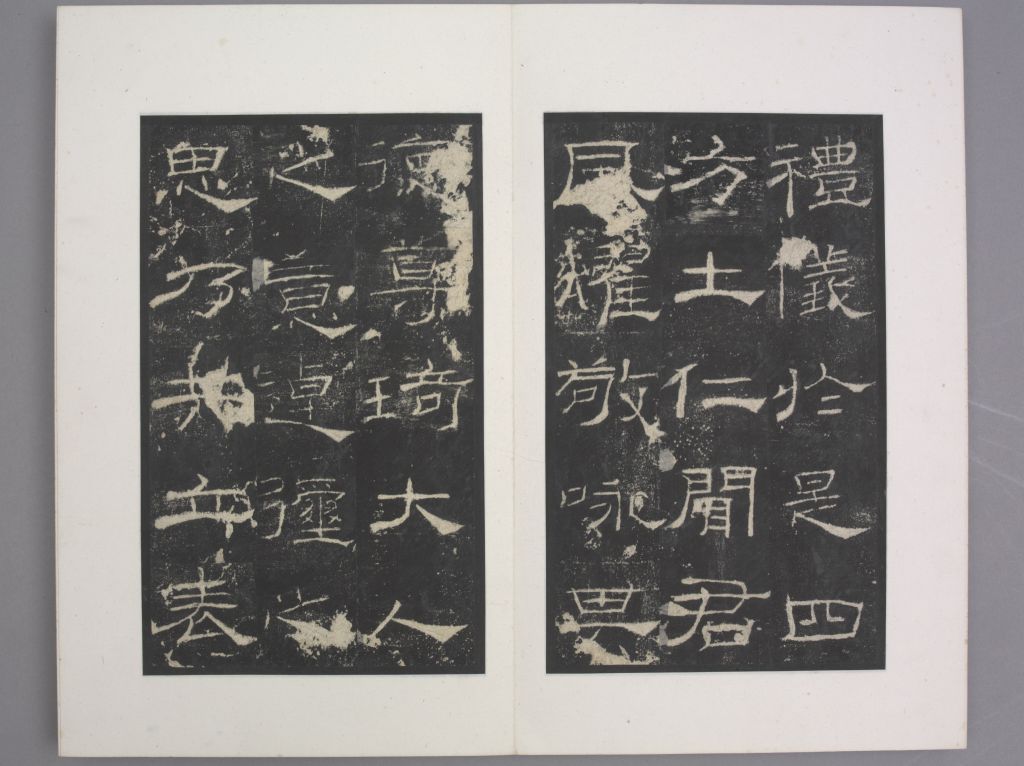 禮儀於是四
方土仁聞君
風燿敬咏其
德尊琦大人
之意逴彌之
思乃共立表